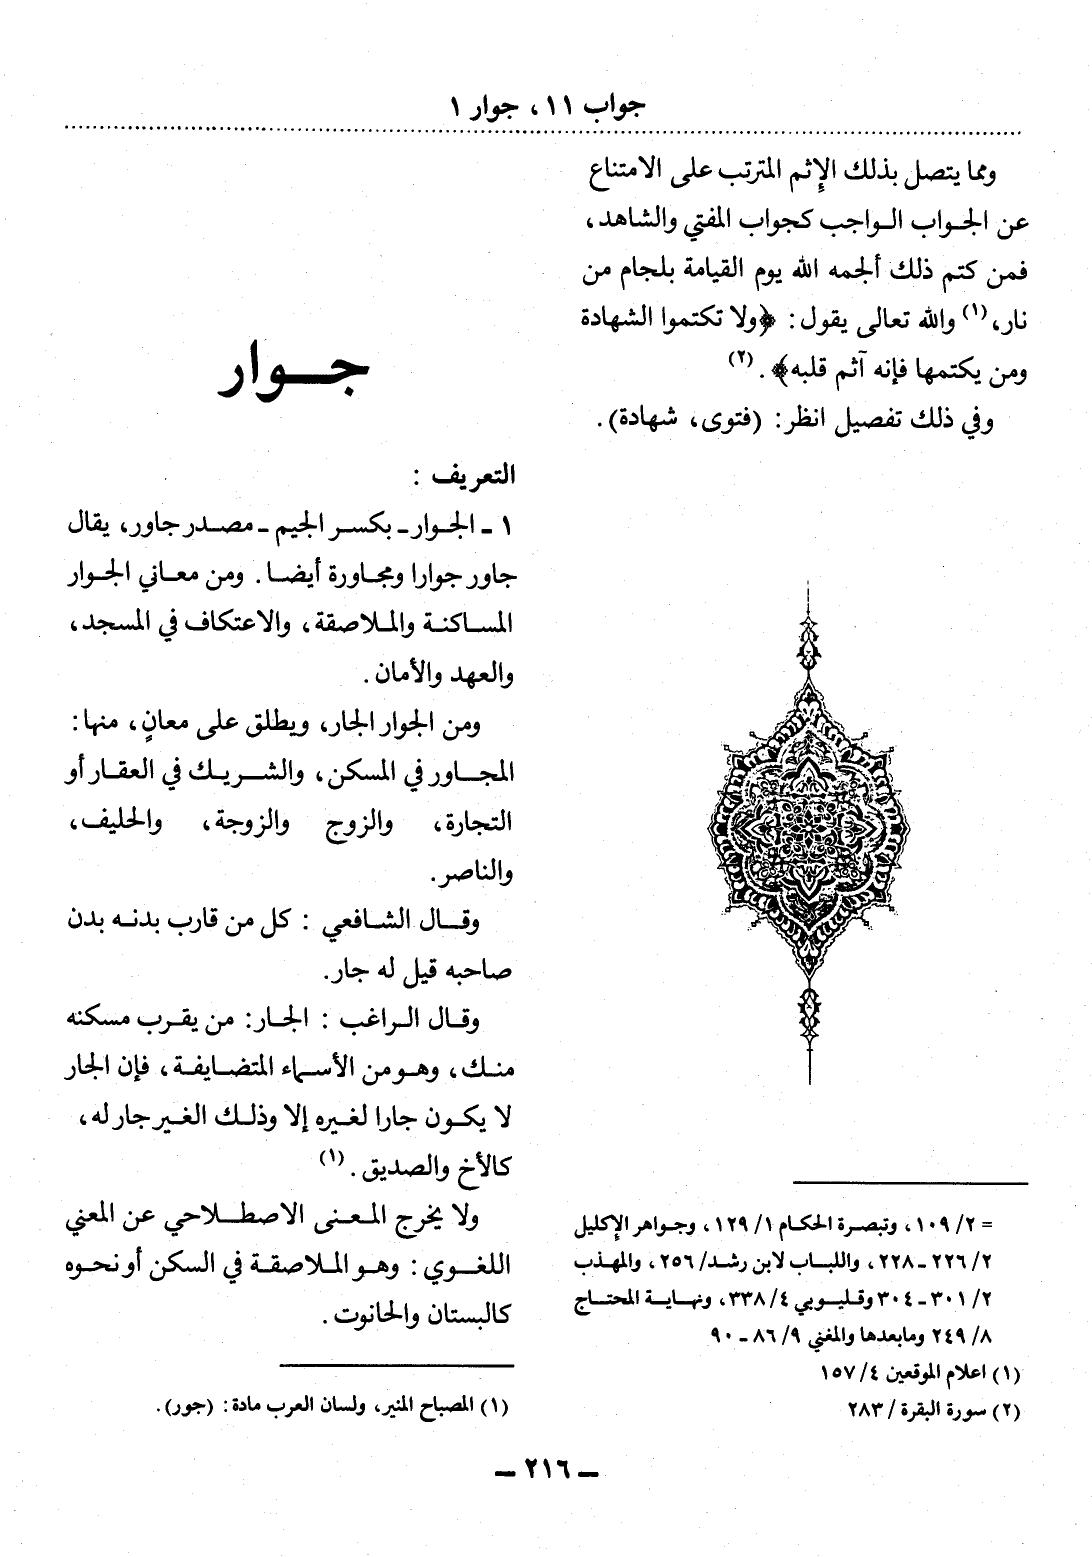 جواب ١١، جوار ١
ومما يتصل بذلك الإثم المترتب على الامتناع
عن الجواب الواجب كجواب المفتي والشاهد،
فمن كتم ذلك ألجمه الله يوم القيامة بلجام من
نار، (١) والله تعالى يقول: ﴿ولا تكتموا الشهادة
ومن يكتمها فإنه آثم قلبه﴾. (٢)
وفي ذلك تفصيل انظر: (فتوى، شهادة).
= ٢/ ١٠٩، وتبصرة الحكام ١/ ١٢٩، وجواهر الإكليل
٢/ ٢٢٦ - ٢٢٨، واللباب لابن رشد/ ٢٥٦، والمهذب
٢/ ٣٠١ - ٣٠٤ وقليوبي ٤/ ٣٣٨، ونهاية المحتاج
٨/ ٢٤٩ ومابعدها والمغني ٩/ ٨٦ - ٩٠
(١) اعلام الموقعين ٤/ ١٥٧
(٢) سورة البقرة / ٢٨٣
جوار
التعريف :
١ - الجوار - بكسر الجيم - مصدر جاور، يقال
جاور جوارا ومجاورة أيضا. ومن معاني الجوار
المساكنة والملاصقة، والاعتكاف في المسجد،
والعهد والأمان.
ومن الجوار الجار، ويطلق على معانٍ، منها:
المجاور في المسكن، والشريك في العقار أو
التجارة، والزوج والزوجة، والحليف،
والناصر.
وقال الشافعي : كل من قارب بدنه بدن
صاحبه قيل له جار.
وقال الراغب : الجار: من يقرب مسكنه
منك، وهو من الأسماء المتضايفة، فإن الجار
لا يكون جارا لغيره إلا وذلك الغير جار له،
كالأخ والصديق. (١)
ولا يخرج المعنى الاصطلاحي عن المعني
اللغوي : وهو الملاصقة في السكن أو نحوه
كالبستان والحانوت.
(١) المصباح المنير، ولسان العرب مادة: (جور).
ـ ٢١٦ ـ